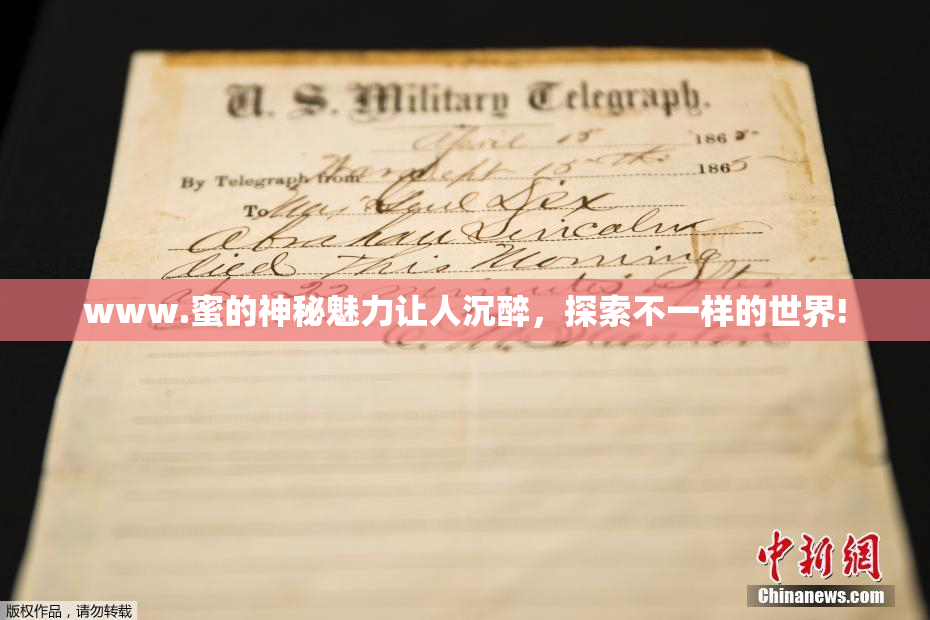 U. S. Military Telegraph.
April 15 1865
By Telegraph from War Dept 15th 1865
To Maj Genl Dix
Abraham Lincoln
died This Morning
at 22 minutes after
www.蜜的神秘魅力让人沉醉，探索不一样的世界!
中新网
Chinanews.com
版权作品，请勿转载